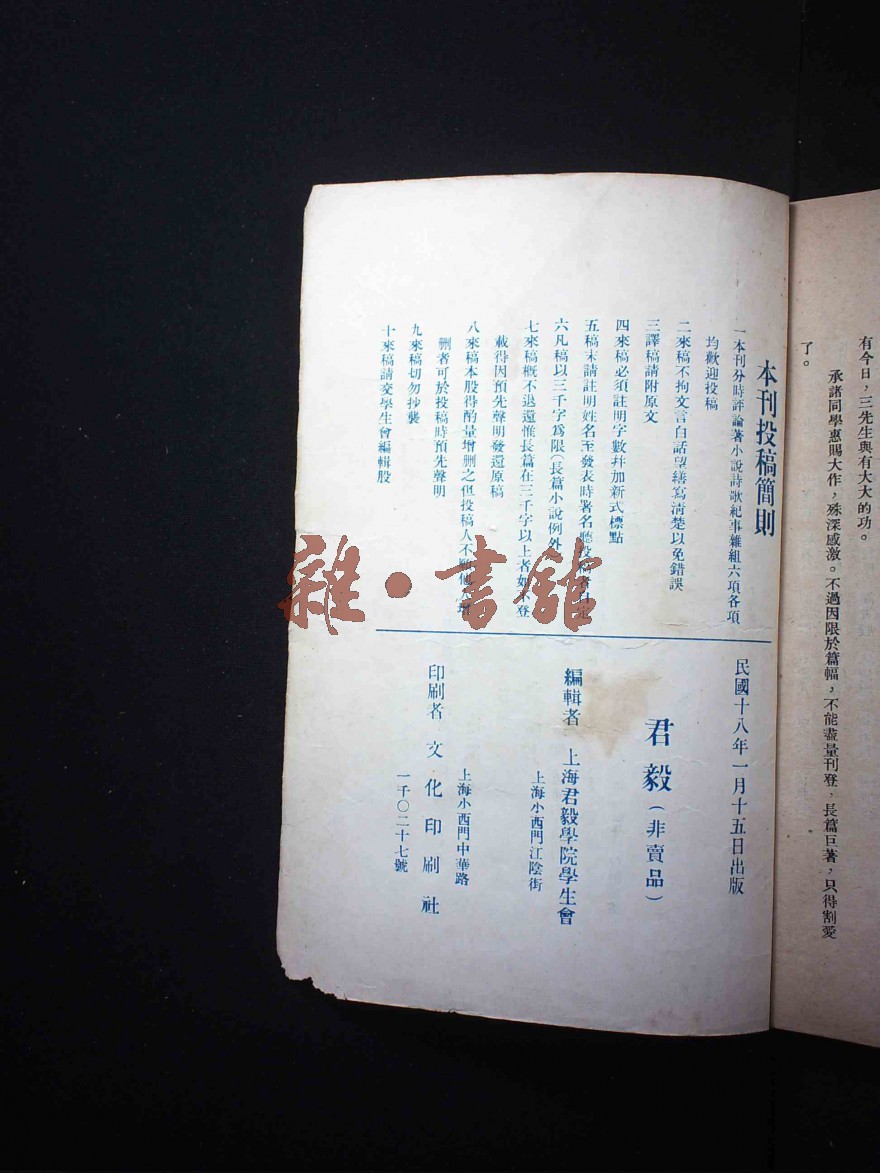 有今日，三先生與有大大的功。
承諸同學惠賜大作，殊深感激。不過因限於篇幅，不能盡量刊登，長篇巨著，只得割愛
了。
本刊投稿簡則
一本刊分時評論著小說詩歌紀事雜組六項各項
均歡迎投稿
二來稿不拘文言白話望繕寫清楚以免錯誤
三譯稿請附原文
四來稿必須註明字數幷加新式標點
五稿末請註明姓名至發表時署名聽投稿者自定
六凡稿以三千字爲限（長篇小說例外
七來稿概不退還惟長篇在三千字以上者如不登
載得因預先聲明發還原稿
八來稿本股得酌量增删之但投稿人不願他人增
删者可於投稿時預先聲明
九來稿切勿抄襲
十來稿請交學生會編輯股
民國十八年一月十五日出版
君毅（非賣品）
編輯者 上海君毅學院學生會
上海小西門江陰街
印刷者 文化印刷社
上海小西門中華路
一千〇二十七號
雜·書館